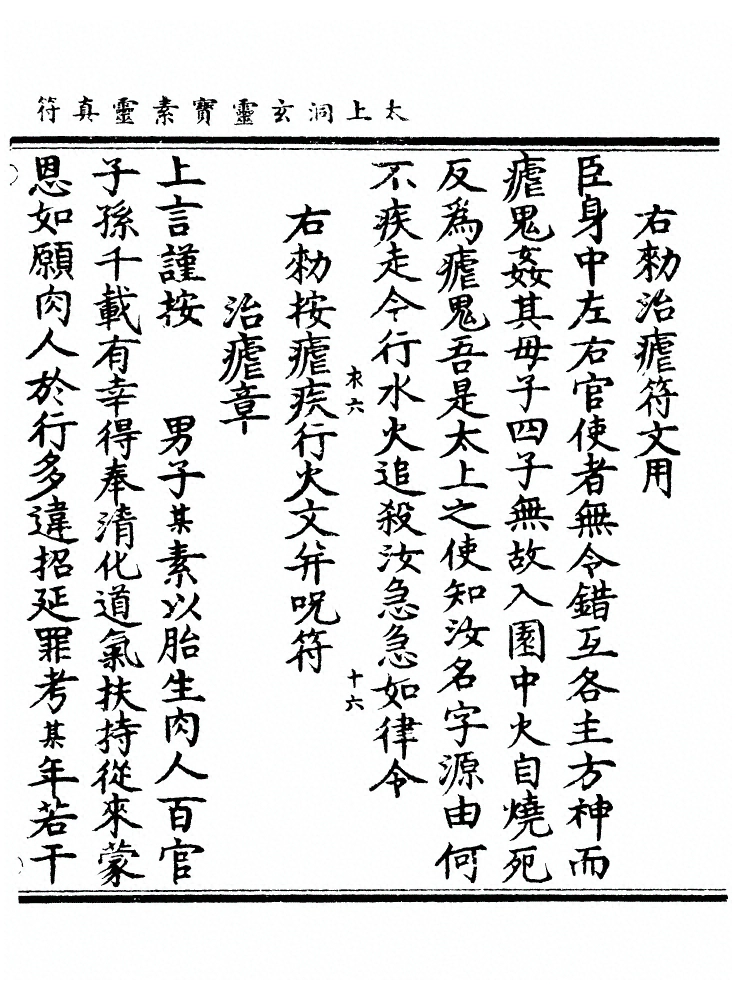 太上洞玄靈寶素靈真符
右勑治瘧符文用
臣身中左右官使者無令錯互各主方神而
瘧鬼姦其母子四子無故入園中火自燒死
反為瘧鬼吾是太上之使知汝名字源由何
不疾走今行水火追殺汝急急如律令
右勑按瘧疾行火文并呪符
十六
治瘧章
上言謹按 男子某素以胎生肉人百官
子孫千載有幸得奉清化道氣扶持從來蒙
恩如願肉人於行多違招延罪考某年若干